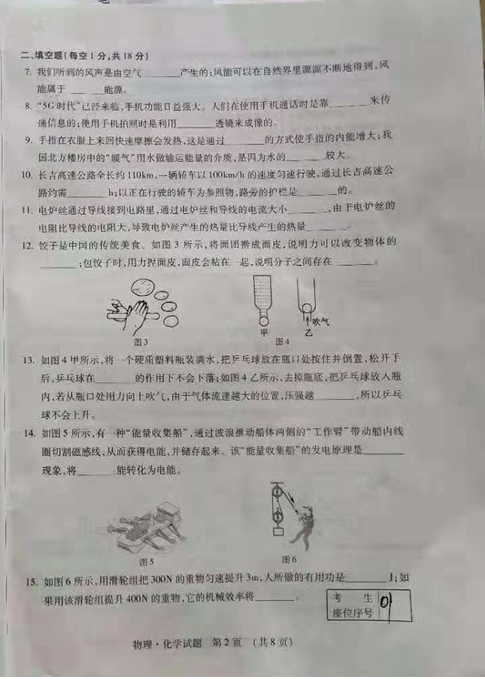 二、填空题(每空1分,共18分)
7. 我们听到的风声是由空气______产生的;风能可以在自然界里源源不断地得到,风
能属于______能源。
8. “5G时代”已经来临,手机功能日益强大。人们在使用手机通话时是靠______来传
递信息的;使用手机拍照时是利用______透镜来成像的。
9. 手指在衣服上来回快速摩擦会发热,这是通过______的方式使手指的内能增大;我
国北方楼房中的“暖气”用水做输运能量的介质,是因为水的______较大。
10. 长吉高速公路全长约110km,一辆轿车以100km/h的速度匀速行驶,通过长吉高速公
路约需______h;以正在行驶的轿车为参照物,路旁的护栏是______的。
11. 电炉丝通过导线接到电路里,通过电炉丝和导线的电流大小______,由于电炉丝的
电阻比导线的电阻大,导致电炉丝产生的热量比导线产生的热量______。
12. 饺子是中国的传统美食。如图3所示,将面团擀成面皮,说明力可以改变物体的
______;包饺子时,用力捏面皮,面皮会粘在一起,说明分子之间存在______。
吹气
甲 乙
图3 图4
13. 如图4甲所示,将一个硬质塑料瓶装满水,把乒乓球放在瓶口处按住并倒置,松开手
后,乒乓球在______的作用下不会下落;如图4乙所示,去掉瓶底,把乒乓球放入瓶
内,若从瓶口处用力向上吹气,由于气体流速越大的位置,压强越______,所以乒乓
球不会上升。
14. 如图5所示,有一种“能量收集船”,通过波浪推动船体两侧的“工作臂”带动船内线
圈切割磁感线,从而获得电能,并储存起来。该“能量收集船”的发电原理是______
现象,将______能转化为电能。
图5 图6
15. 如图6所示,用滑轮组把300N的重物匀速提升3m,人所做的有用功是______J;如
果用该滑轮组提升400N的重物,它的机械效率将______。
考 生
座位序号 01
物理·化学试题 第2页 (共8页)